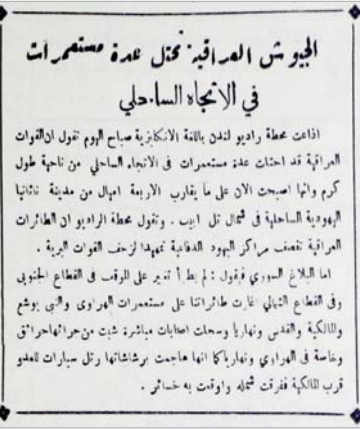 الجيوش العراقية تحتل عدة مستعمرات
في الاتجاه الساحلي
اذاعت محطة راديو لندن باللغة الانكليزية صباح اليوم تقول ان القوات
العراقية قد احتلت عدة مستعمرات في الاتجاه الساحلي من ناحية طول
كرم وانها اصبحت الان على ما يقارب الاربعة اميال من مدينة ناثانيا
اليهودية الساحلية في شمال تل ابيب . وتقول محطة الراديو ان الطائرات
العراقية تقصف مراكز اليهود الدفاعية تمهيدا لزحف القوات البرية .
اما البلاغ السوري فيقول : لم يطرأ تغير على الموقف في القطاع الجنوبي
وفي القطاع الشمالي اغارت طائراتنا على مستعمرات الهراوي والنبي يوشع
والمالكية والقدس ونهاريا وسجلت اصابات مباشرة شبت من جرائها حرائق
وخاصة في الهراوي ونهاريا كما انها هاجمت برشاشاتها رتل سيارات للعدو
قرب المالكية ففرقت شمله واوقعت به خسائر .